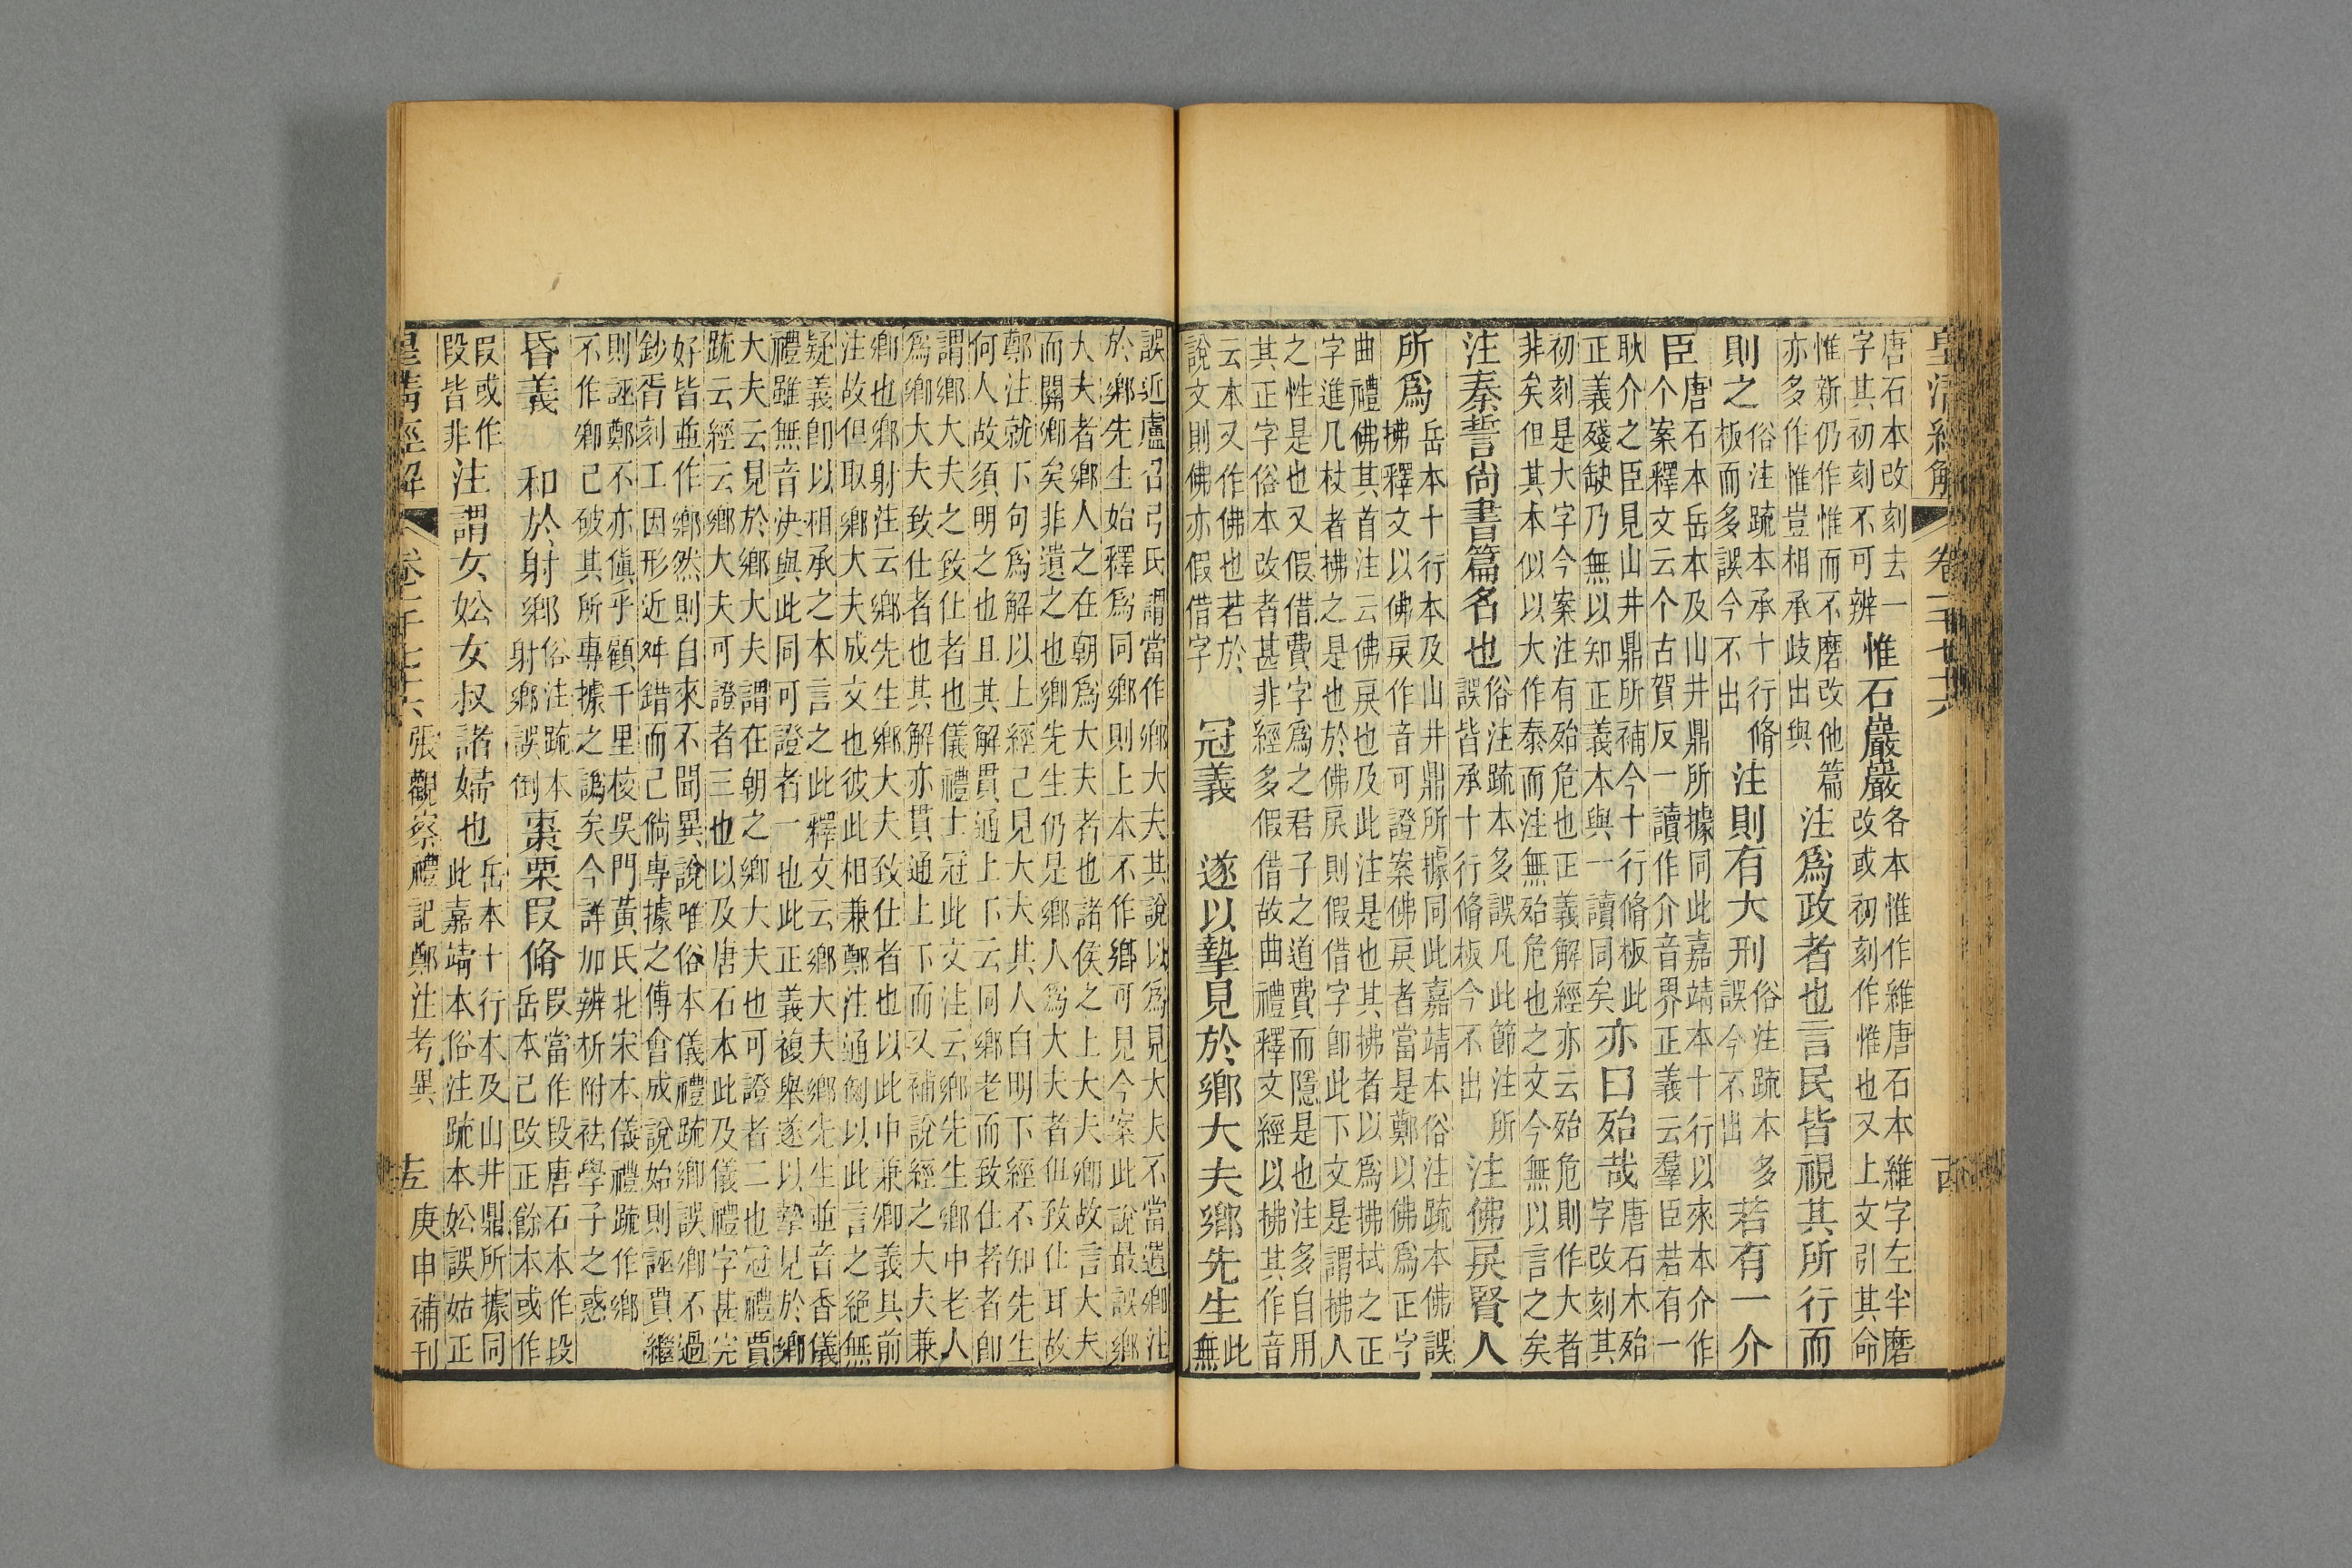 皇清經解 卷一千七十六 古
唐石本改刻去一
字其初刻不可辨
惟石巖巖
各本惟作維唐石本維字左半磨
改或初刻作惟也又上文引其命
惟新仍作惟而不磨改他篇
亦多作惟豈相承歧出與
注爲政者也言民皆視其所行而
則之
俗注疏本承十行脩
板而多誤今不出
注則有大刑
俗注疏本多
誤今不出
若有一介
臣
唐石本岳本及山井鼎所據同此嘉靖本十行以來本介作
个案釋文云个古賀反一讀作介音界正義云羣臣若有一
耿介之臣見山井鼎所補今十行脩板此
正義殘缺乃無以知正義本與一讀同矣
亦曰殆哉
唐石木殆
字改刻其
初刻是大字今案注有殆危也正義解經亦云殆危則作大者
非矣但其本似以大作泰而注無殆危也之文今無以言之矣
注秦誓尚書篇名也
俗注疏本多誤凡此節注所
誤皆承十行脩板今不出
注佛戾賢人
所爲
岳本十行本及山井鼎所據同此嘉靖本俗注疏本佛誤
拂釋文以佛戾作音可證案佛戾者當是鄭以佛爲正字
曲禮佛其首注云佛戾也及此注是也其拂者以爲拂拭之正
字進几杖者拂之是也於佛戾則假借字卽此下文是謂拂人
之性是也又假借費字爲之君子之道費而隱是也注多自用
其正字俗本改者甚非經多假借故曲禮釋文經以拂其作音
云本又作佛也若於
說文則佛亦假借字
冠義
遂以摯見於鄉大夫鄉先生
此
無
誤近盧召弓氏謂當作鄉大夫其說以爲見大夫不當遺卿注
於鄉先生始釋爲同鄉則上本不作鄉可見今案此說最誤鄉
大夫者鄉人之在朝爲大夫者也諸侯之上大夫卿故言大夫
而關卿矣非遺之也鄉先生仍是鄉人爲大夫者但致仕耳故
鄭注就下句爲解以上經已見大夫其人自明下經不知先生
何人故須明之也且其解貫通上下云同鄉老而致仕者卽
謂鄉大夫之致仕者也儀禮士冠此文注云鄉先生鄉中老人
爲鄉大夫致仕者也其解亦貫通上下而又補說經之大夫兼
卿也鄉射注云鄉先生鄉大夫致仕者也以此中兼卿義具前
注故但取鄉大夫成文也彼此相兼鄭注通例以此言之絕無
疑義卽以相承之本言之此釋文云鄉大夫鄉先生並音香儀
禮雖無音決與此同可證者一也此正義複舉遂以摯見於鄉
大夫云見於鄉大夫謂在朝之卿大夫也可證者二也冠禮賈
疏云經云鄉大夫可證者三也以及唐石本此及儀禮字甚完
好皆並作鄉然則自來不聞異說唯俗本儀禮疏鄉誤卿不過
鈔胥刻工因形近舛錯而已倘專據之傅會成說始則誣賈繼
則誣鄭不亦傎乎顧千里校吳門黃氏北宋本儀禮疏作鄉
不作卿已破其所專據之譌矣今詳加辨析附袪學子之惑
昏義
和於射鄉
俗注疏本
射鄉誤倒
棗栗段脩
段當作段唐石本作段
岳本已改正餘本或作
叚或作
段皆非
注謂女妐女叔諸婦也
岳本十行本及山井鼎所據同
此嘉靖本俗注疏本妐誤姑正
皇清經解 卷一千七十六 張觀察禮記鄭注考異 左 庚申補刊